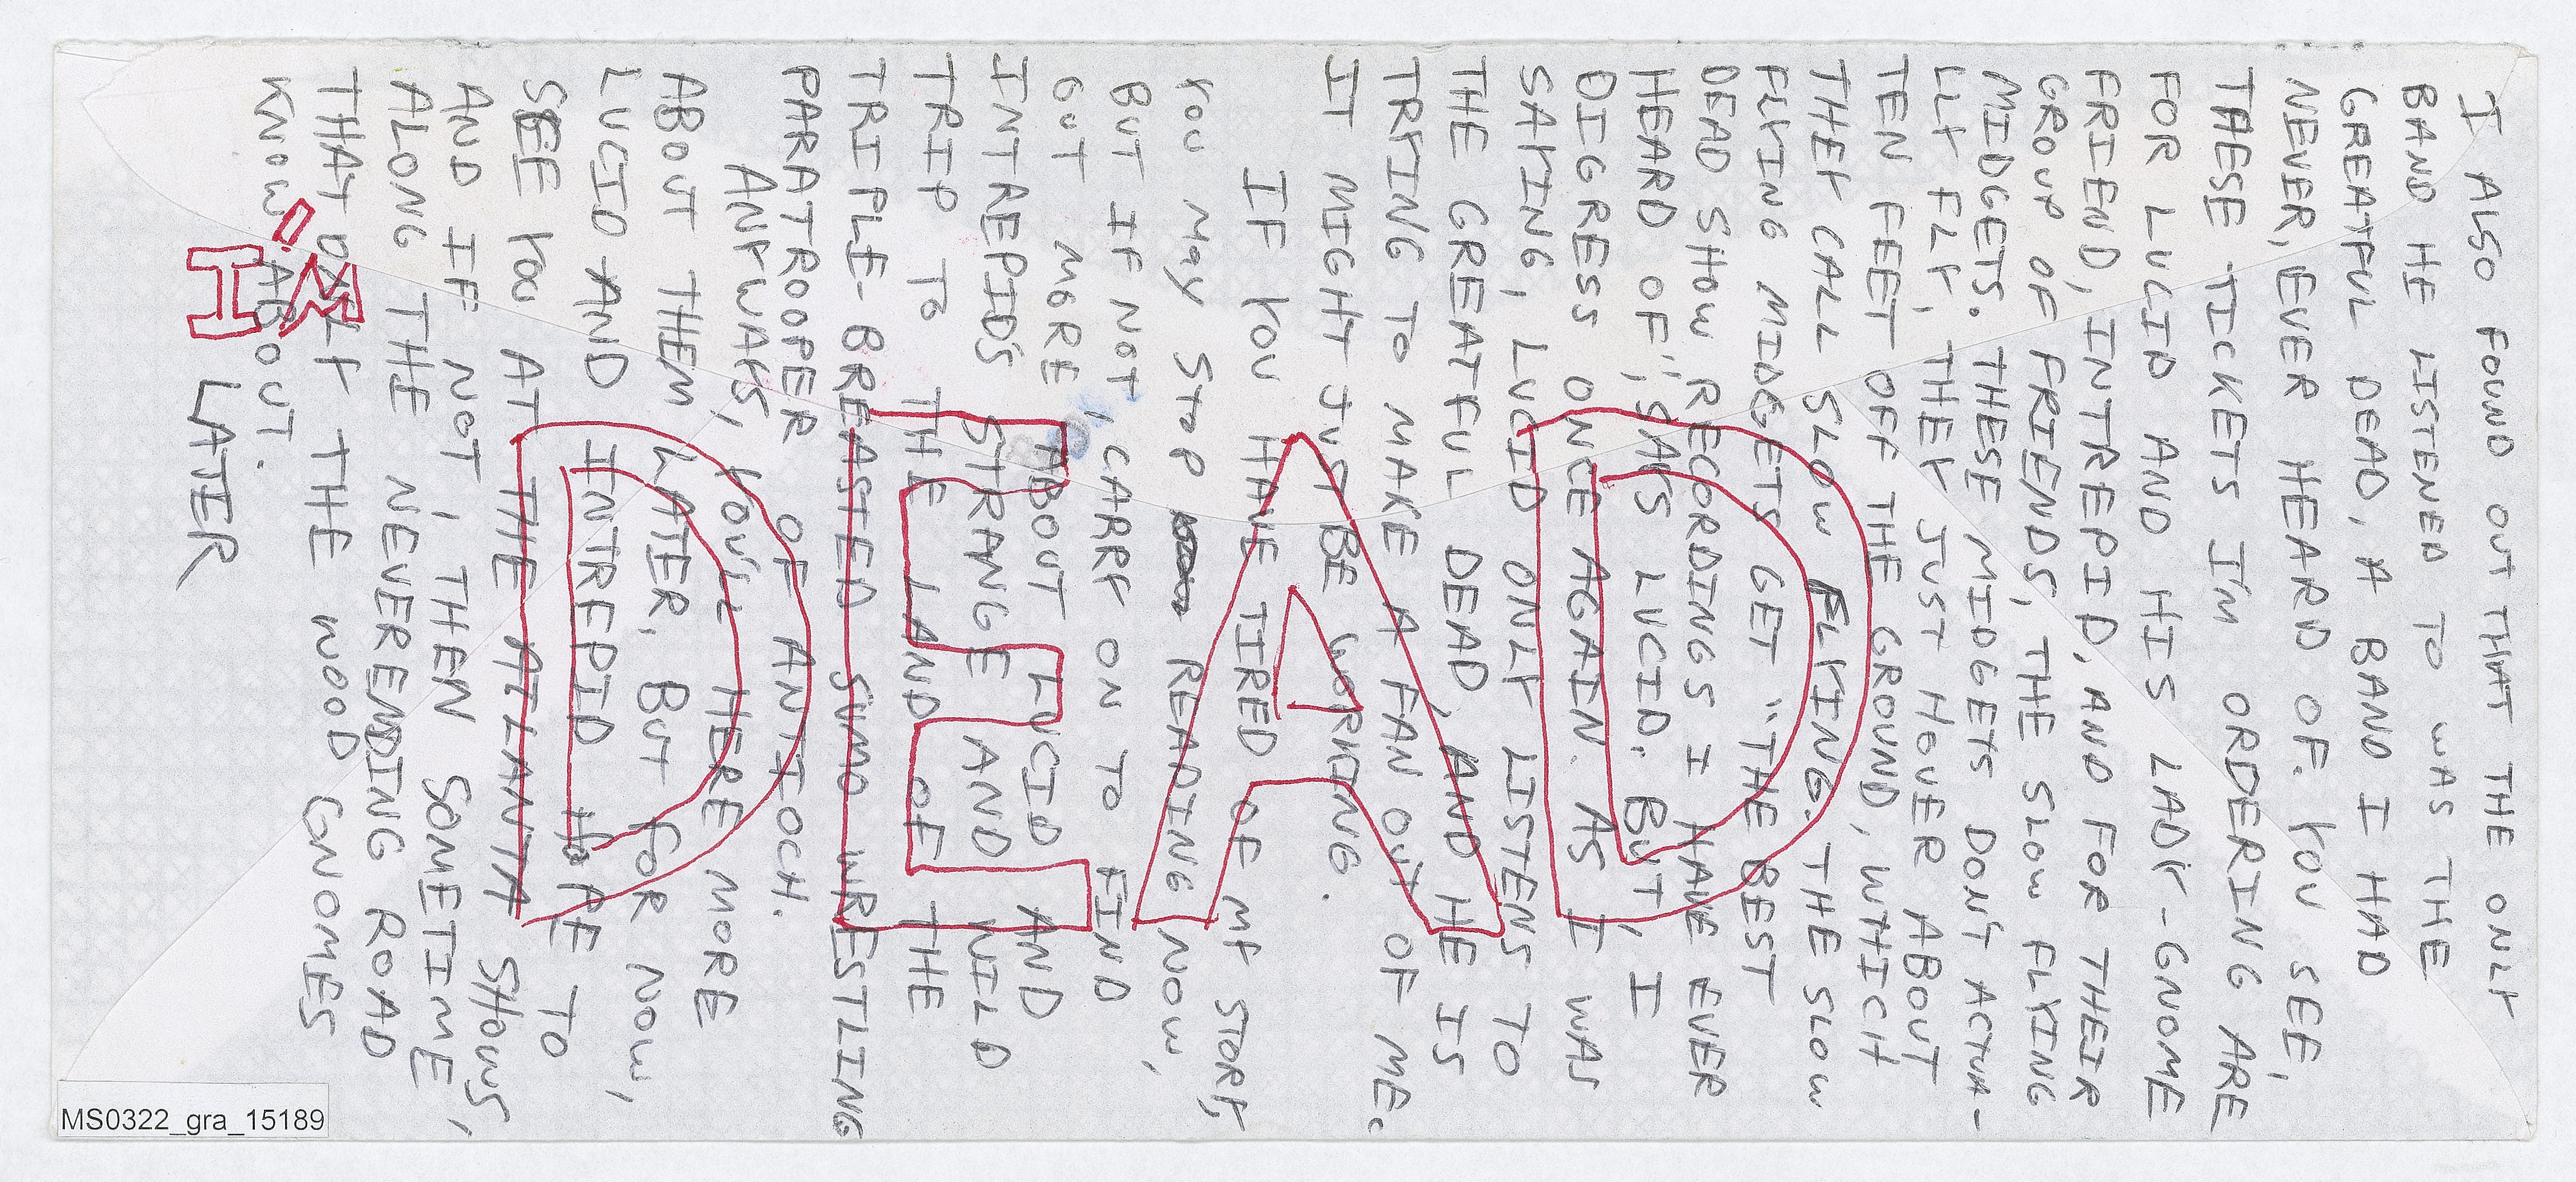 I ALSO FOUND OUT THAT THE ONLY
BAND HE LISTENED TO WAS THE
GREATFUL DEAD, A BAND I HAD
NEVER, EVER HEARD OF. YOU SEE,
THESE TICKETS I'M ORDERING ARE
FOR LUCID AND HIS LADY-GNOME
FRIEND, INTREPID, AND FOR THEIR
GROUP OF FRIENDS, THE SLOW FLYING
MIDGETS. THESE MIDGETS DON'T ACTUA-
LLY FLY, THEY JUST HOVER ABOUT
TEN FEET OFF THE GROUND, WHICH
THEY CALL SLOW FLYING. THE SLOW
FLYING MIDGETS GET "THE BEST
DEAD SHOW RECORDINGS I HAVE EVER
HEARD OF", SAYS LUCID. BUT, I
DIGRESS ONCE AGAIN. AS I WAS
SAYING, LUCID ONLY LISTENS TO
THE GREATFUL DEAD, AND HE IS
TRYING TO MAKE A FAN OUT OF ME.
IT MIGHT JUST BE WORKING.
IF YOU HAVE TIRED OF MY STORY,
YOU MAY STOP READING NOW,
BUT IF NOT, CARRY ON TO FIND
OUT MORE ABOUT LUCID AND
INTREPID'S STRANGE AND WILD
TRIP TO THE LAND OF THE
TRIPLE-BREASTED SUMO WRESTLING
PARATROOPER OF ANTIOCH.
ANYWAYS, YOU'LL HERE MORE
ABOUT THEM LATER, BUT FOR NOW,
LUCID AND INTREPID HOPE TO
SEE YOU AT THE ATLANTA SHOWS,
AND IF NOT, THEN SOMETIME
ALONG THE NEVERENDING ROAD
THAT ONLY THE WOOD GNOMES
KNOW ABOUT.
LATER
DEAD
MS0322_gra_15189